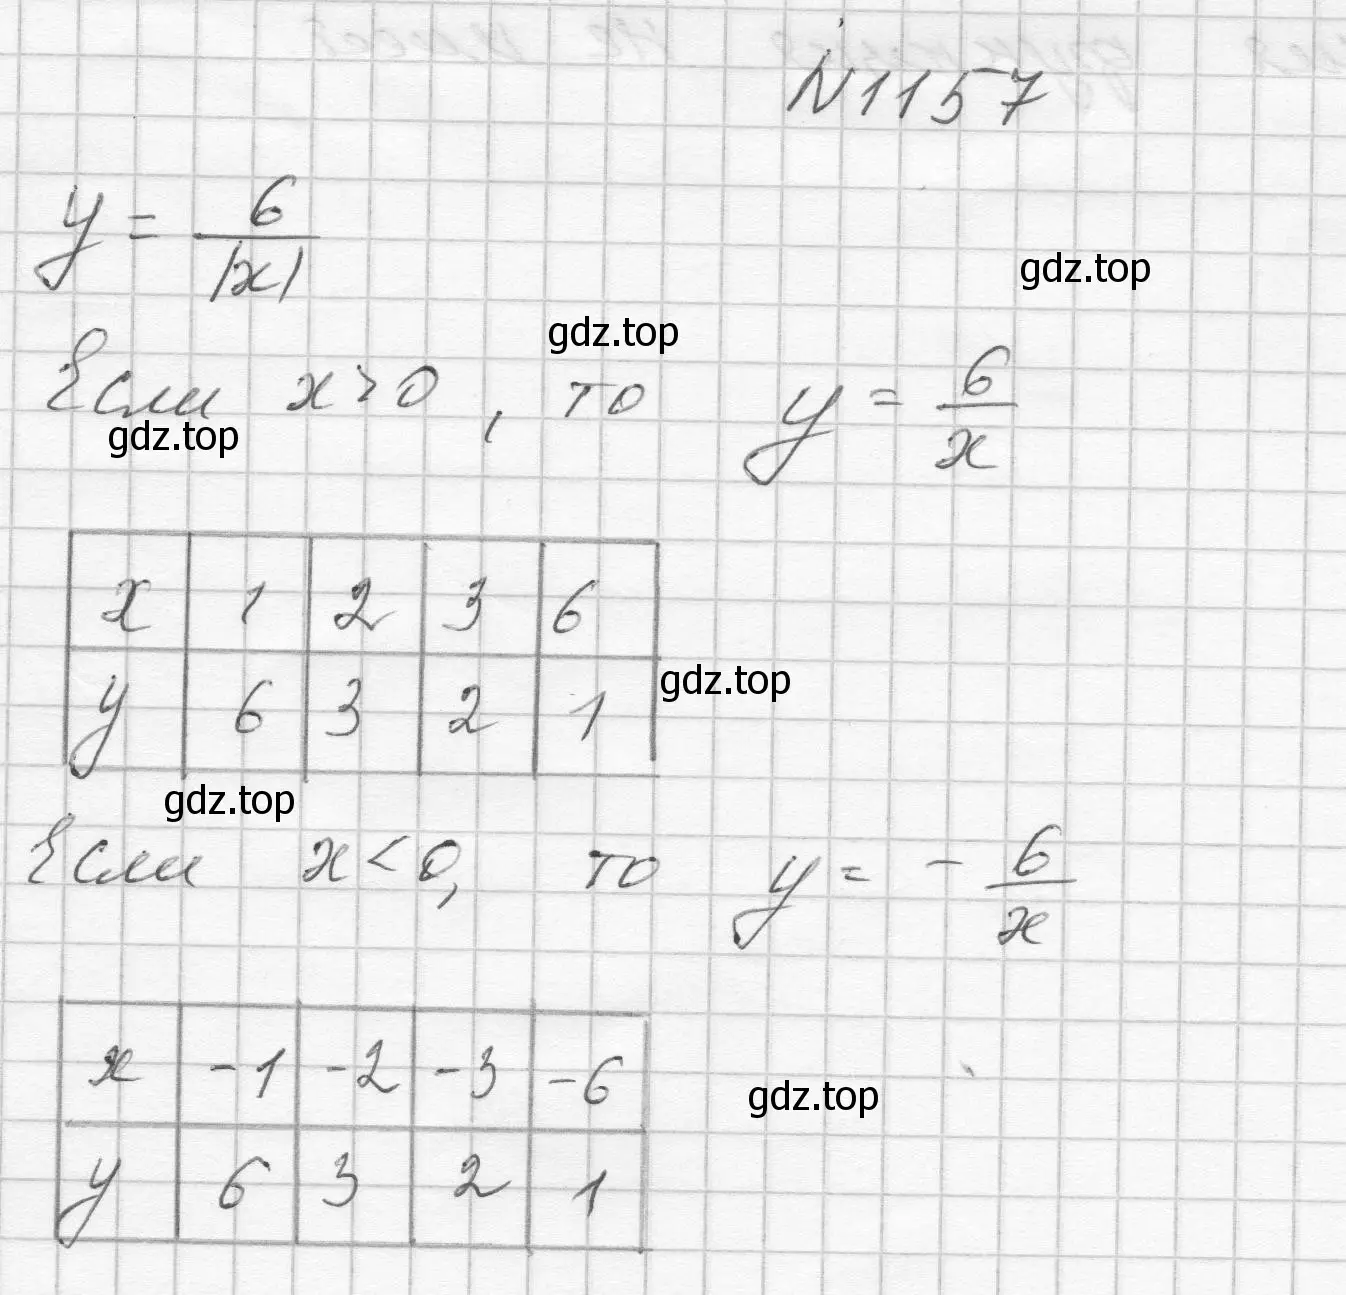 N 1157
y = 6/|x|
gdz.top
gdz.top
Если x > 0, то y = 6/x
gdz.top
x 1 2 3 6
y 6 3 2 1
gdz.top
gdz.top
Если x < 0, то y = - 6/x
x -1 -2 -3 -6
gdz.top
y 6 3 2 1